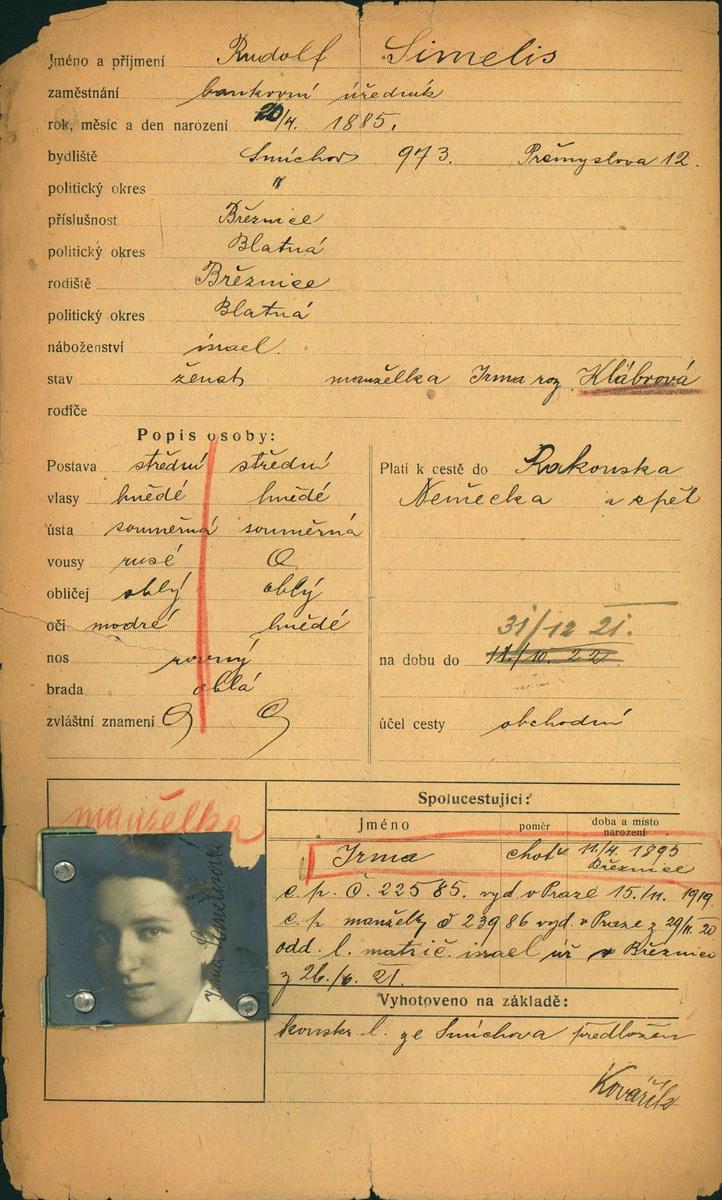 Jméno a příjmení Rudolf Simelis
zaměstnání bankovní úředník
rok, měsíc a den narození 20/4. 1885.
bydliště Smíchov 973. Přemyslova 12.
politický okres "
příslušnost Březnice
politický okres Blatná
rodiště Březnice
politický okres Blatná
náboženství israel.
stav ženat manželka Irma roz Klábrová
rodiče
Popis osoby:
Postava střední střední
vlasy hnědé hnědé
ústa souměrná souměrná
vousy rusé
obličej oblý oblý
oči modré hnědé
nos rovný
brada oblá
zvláštní znamení
Platí k cestě do Rakouska
Německa a zpět
31/12 21.
na dobu do 11./10. 22
účel cesty obchodní
manželka
Spolucestující:
Jméno poměr doba a místo narození
Irma choť 11./4. 1895 Březnice
c. p. č. 225 85. vyd v Praze 15./11. 1919.
c. p. manželky č 239 86 vyd. v Praze z 29/11. 20
odd. l. matrič. israel úř v Březnici
z 26./6. 21.
Vyhotoveno na základě:
konskr. l. ze Smíchova předložen
Kovařík